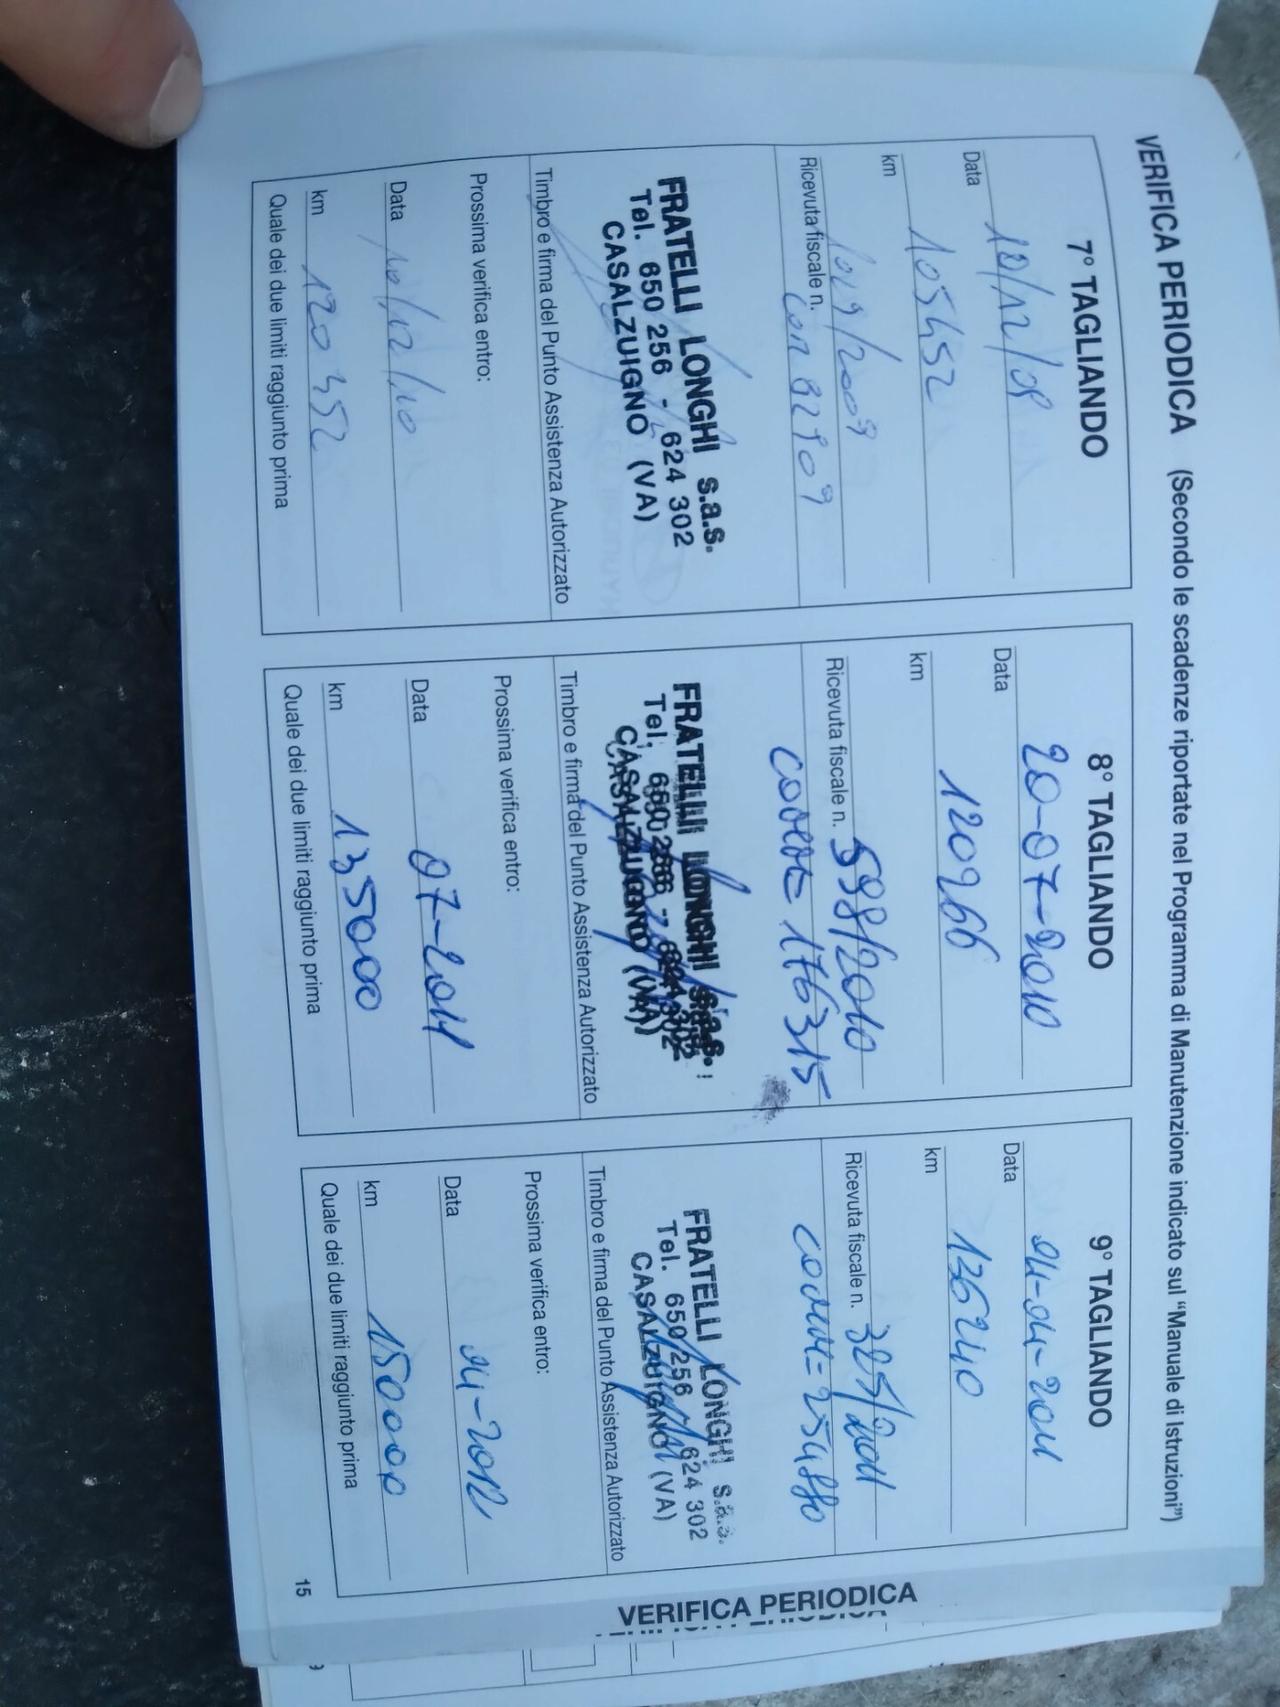 VERIFICA PERIODICA (Secondo le scadenze riportate nel Programma di Manutenzione indicato sul "Manuale di Istruzioni")
7° TAGLIANDO
Data 10/12/09
km 105452
1019/2009
Ricevuta fiscale n. 82909
FRATELLI LONGHI s.a.s.
Tel. 650 256 - 624 302
CASALZUIGNO (VA)
Timbro e firma del Punto Assistenza Autorizzato
Prossima verifica entro:
Data 10/12/10
km 120452
Quale dei due limiti raggiunto prima
8° TAGLIANDO
Data 20-07-2010
km 120966
Ricevuta fiscale n. 598/2010
176315
FRATELLI LONGHI s.a.s.
Tel. 650 256 - 624 302
CASALZUIGNO (VA)
Timbro e firma del Punto Assistenza Autorizzato
Prossima verifica entro:
Data 07-2011
km 135000
Quale dei due limiti raggiunto prima
9° TAGLIANDO
Data 04-04-2011
km 136240
Ricevuta fiscale n. 325/2011
254880
FRATELLI LONGHI s.a.s.
Tel. 650 256 624 302
CASALZUIGNO (VA)
Timbro e firma del Punto Assistenza Autorizzato
Prossima verifica entro:
Data 04-2012
km 150000
Quale dei due limiti raggiunto prima
15
VERIFICA PERIODICA